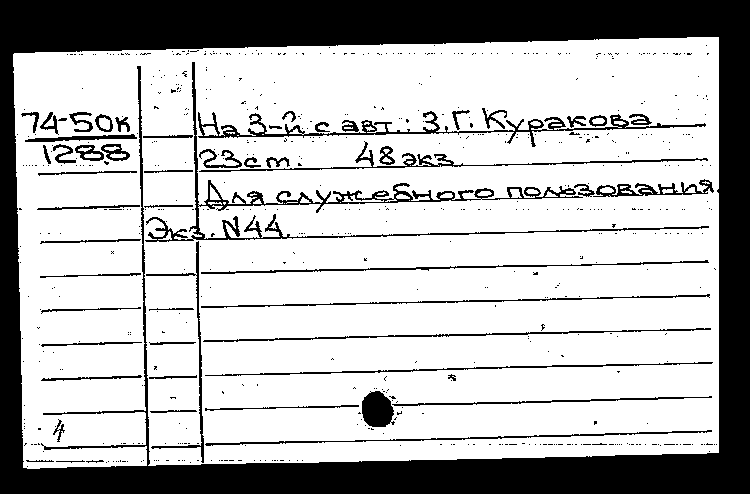 74-50к На 3-й с авт.: З.Г. Куракова.
1288 23ст. 48экз
Для служебного пользования.
Экз. N44.
4